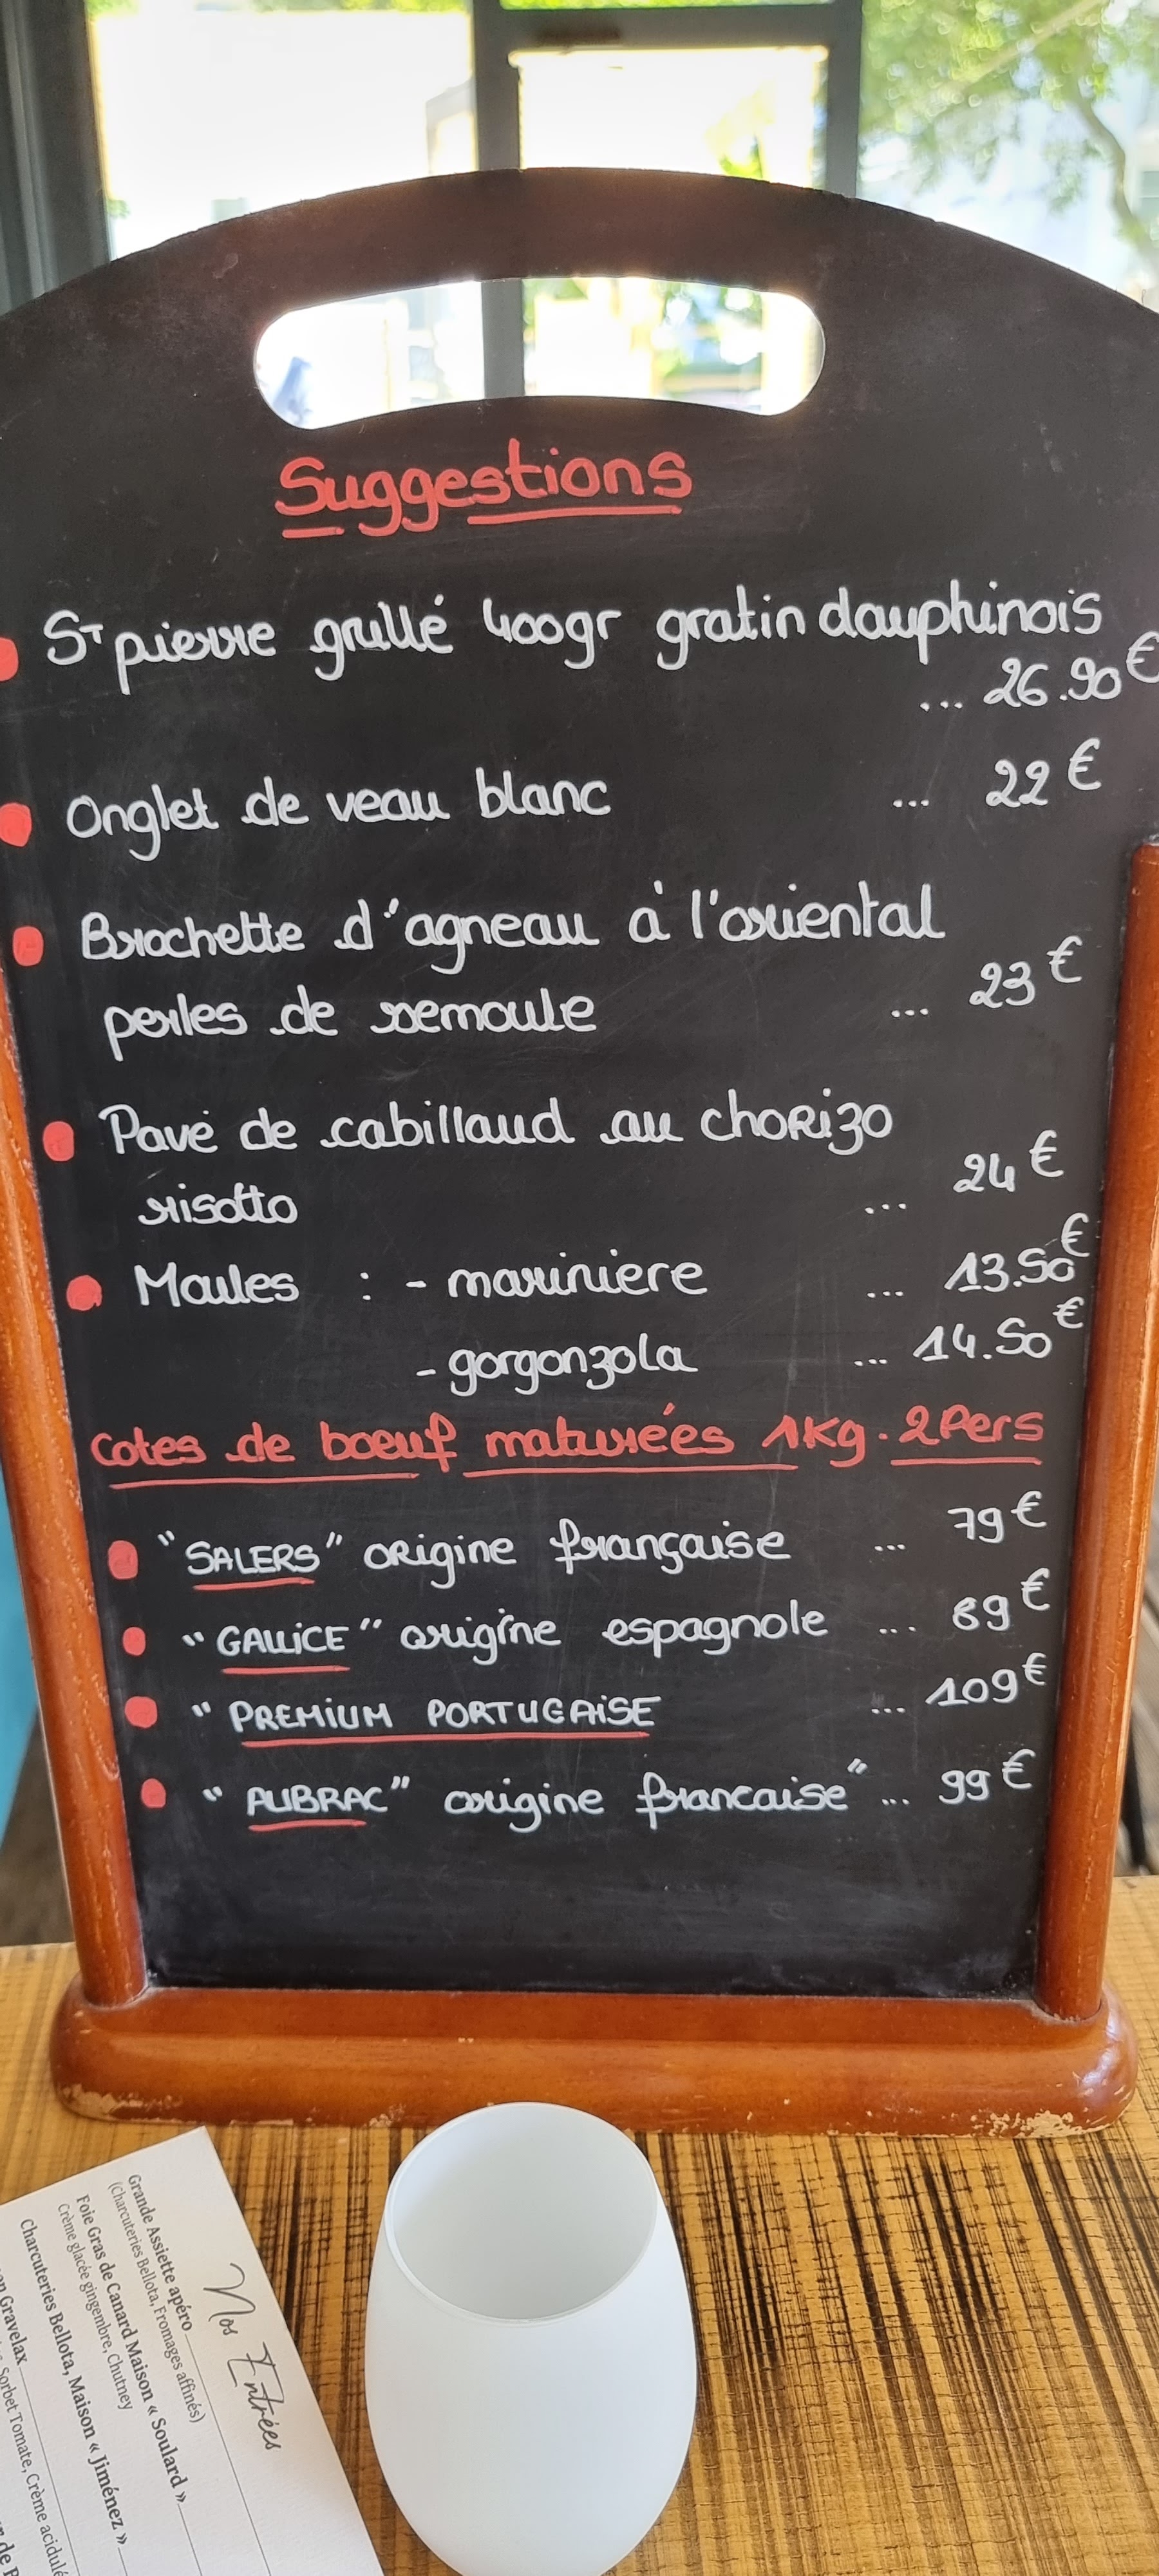 Suggestions
ST pierre grillé 400gr gratin dauphinois
... 26.90€
Onglet de veau blanc ... 22€
Brochette d'agneau à l'oriental
perles de semoule ... 23€
Pavé de cabillaud au chorizo
risotto ... 24€
Moules : - mariniere ... 13.50€
- gorgonzola ... 14.50€
Cotes de boeuf maturées 1Kg. 2Pers
"SALERS" origine française ... 79€
"GALLiCE" origine espagnole ... 89€
"PREMiUM PORTUGAiSE ... 109€
"AUBRAC" origine francaise" ... 99€
Nos Entrées
Grande Assiette apéro
(Charcuteries Bellota, Fromages affinés)
Foie Gras de Canard Maison « Soulard »
Crème glacée gingembre, Chutney
Charcuteries Bellota, Maison « Jiménez »
Gravelax
Sorbet Tomate, Crème acidulé